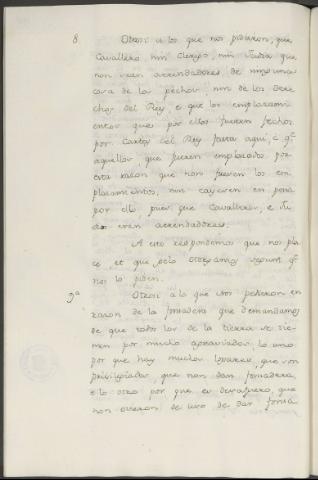 8. Otrosi a lo que nos pidieron, que
Cavallero, nin Clerigo, nin Judio que
non sean arrendadores, de ninguna
cosa de los pechos, nin de los dere-
chos del Rey, e que los emplazami-
entos que por ellos fueren fechos
por Cartas del Rey fasta aqui, e q.e
aquellos, que fueron emplazados por
esta razon que non fuesen los em-
plazamientos, nin cayesen en pena
por ello, pues que Cavalleros, e Ju-
dios eran arrendadores.
A esto respondemos que nos pla-
ce, et que gelo otorgamos segunt q.e
nos lo piden.
9.a Otrosi a lo que nos pidieron en
razon de la fonsadera que demandamos
de que todos los de la tierra se tie-
nen por mucho agraviados lo uno
por que hay muchos logares, que son
privilegiados, que non dan fonsadera,
e lo otro por que es desafuero, que
non ovieron de uso de dar fonsa